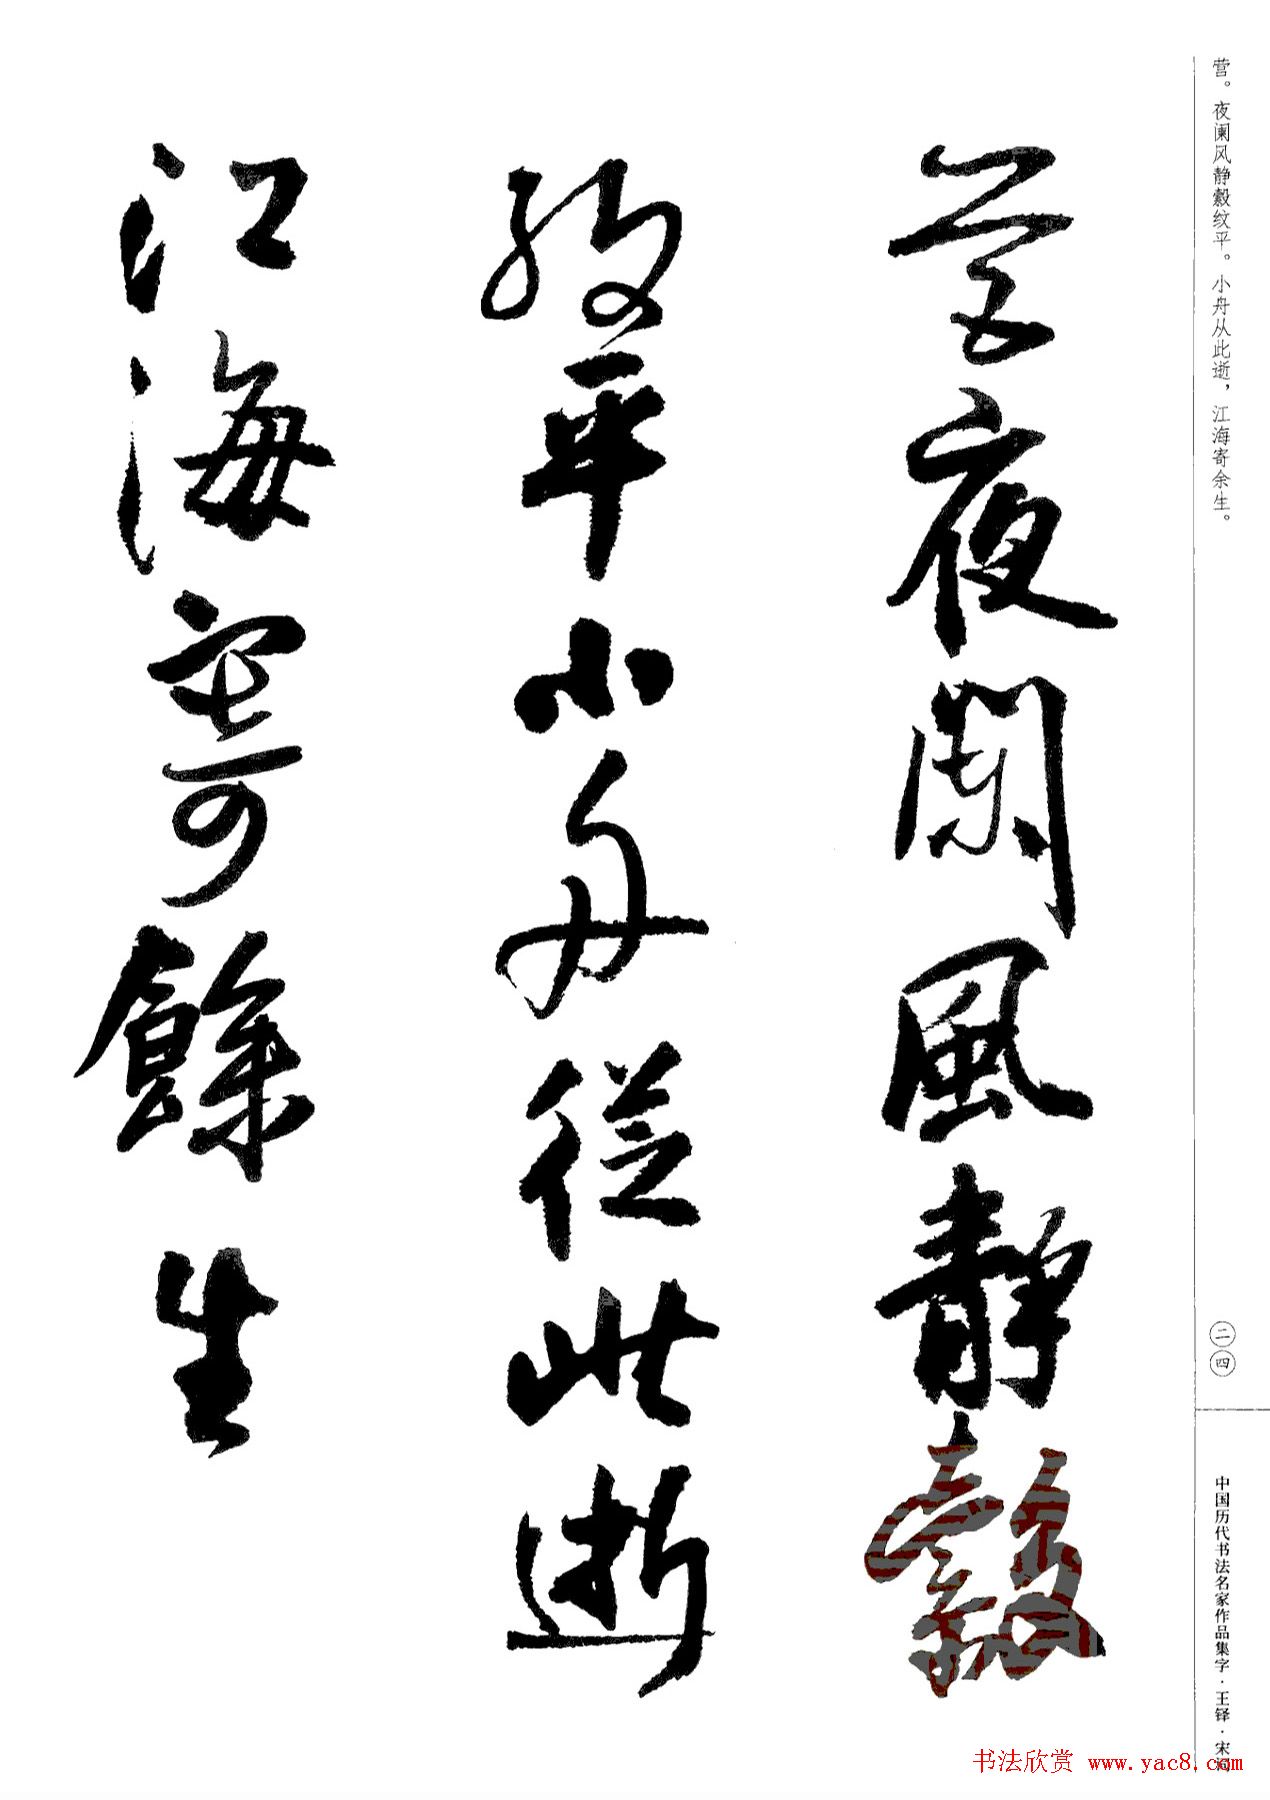 营。夜阑风静縠纹平。小舟从此逝，江海寄余生。
营夜闌風靜縠
紋平小舟從此逝
江海寄餘生
二四
中国历代书法名家作品集字·王铎·宋词
书法欣赏 www.yac8.com